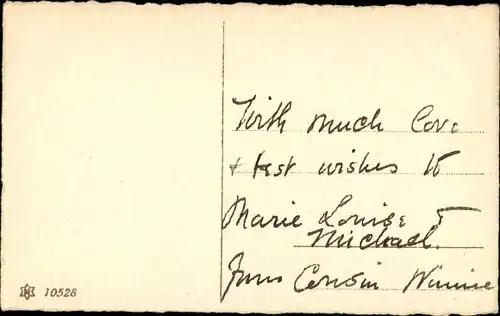 With much Love
+ best wishes to
Marie Louise +
Michael.
from Cousin Winnie
10528